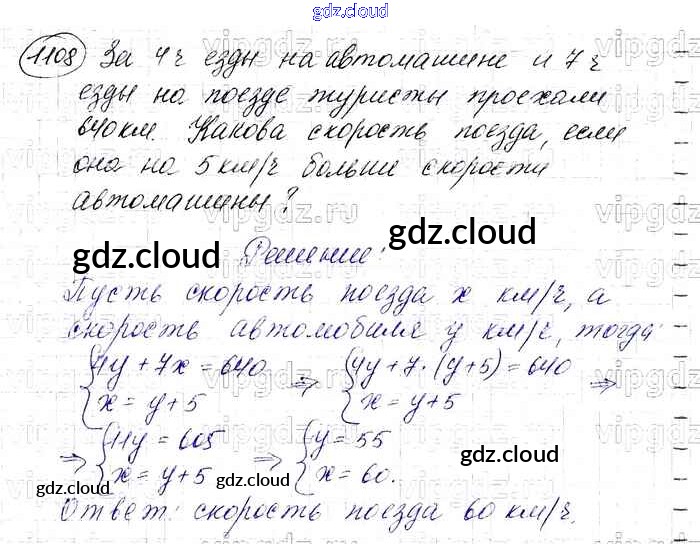 gdz.cloud
1108 За 4 ч езды на автомашине и 7 ч
езды на поезде туристы проехали
640 км. Какова скорость поезда, если
она на 5 км/ч больше скорости
автомашины?
gdz.cloud Решение: gdz.cloud
Пусть скорость поезда x км/ч, а
скорость автомобиля y км/ч, тогда:
{4y + 7x = 640 ⇒ {4y + 7·(y+5) = 640 ⇒
{x = y + 5 {x = y + 5
⇒ {11y = 605 ⇒ {y = 55 gdz.cloud
{x = y + 5 gdz.cloud {x = 60.
gdz.cloud
Ответ: скорость поезда 60 км/ч.